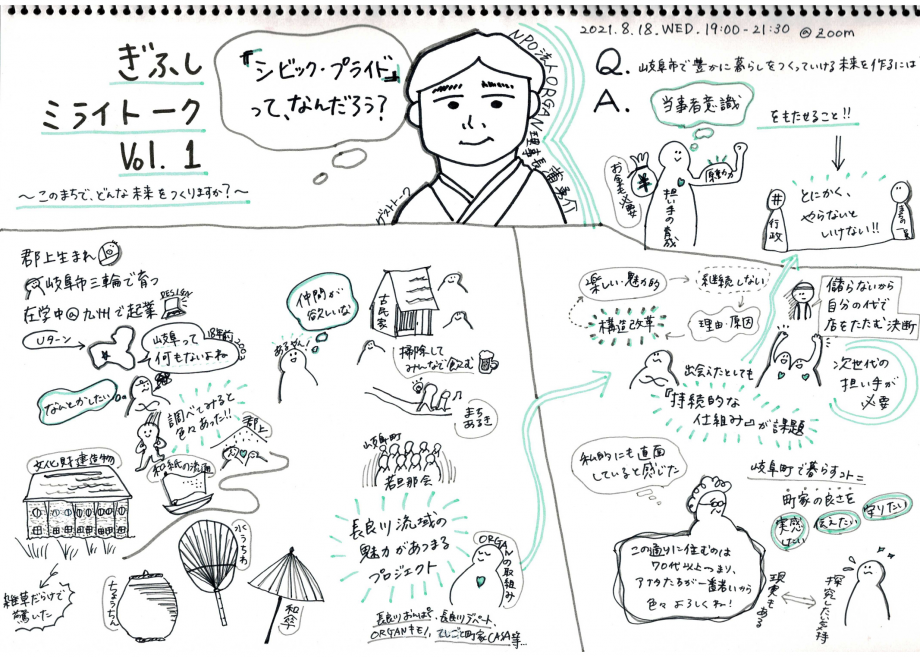 ぎふし
ミライトーク
Vol.1
〜このまちで、どんな未来をつくりますか？〜
『シビック・プライド』
って、なんだろう？
NPO法人ORGAN理事長 蒲勇介
ゲストトーク
2021.8.18.WED. 19:00-21:30 @zoom
Q. 岐阜市で豊かに暮らしをつくっていける未来を作るには
A.
当事者意識
をもたせること!!
お金も必要
¥
魅力
担い手の育成
とにかく、
やらないと
いけない!!
行政
郡上生まれ
岐阜市三輪で育つ
在学中@九州で起業
DESIGN
Uターン
岐阜って
何もないよね
18年前
2003
なんとかしたい
調べてみると
色々あった!!
郡上
和紙の流通
文化財建造物
雑草だらけで
驚いた
ちょうちん
水うちわ
和傘
仲間が
欲しいな
あるぜん!
古民家
掃除して
みんなで飲む
まち
あるき
岐阜町
若旦那会
長良川流域の
魅力があつまる
プロジェクト
ORGANの取組み
長良川おんぱく、長良川デパート、
ORGANキモノ、てしごと町家CASA等…
楽しい・魅力的
継続しない
理由・原因
構造改革
出会えたとしても
『持続的な
仕組み』が課題
儲らないから
自分の代で
店をたたむ決断
次世代の
担い手が
必要
私的にも直面
していると感じた
岐阜町で暮らすコト=
町家の良さを
実感したい
伝えたい
守りたい
この通りに住むのは
70代以上つまり、
アナタたちが一番若いから
色々よろしくね!
現実もある
探究したい気持